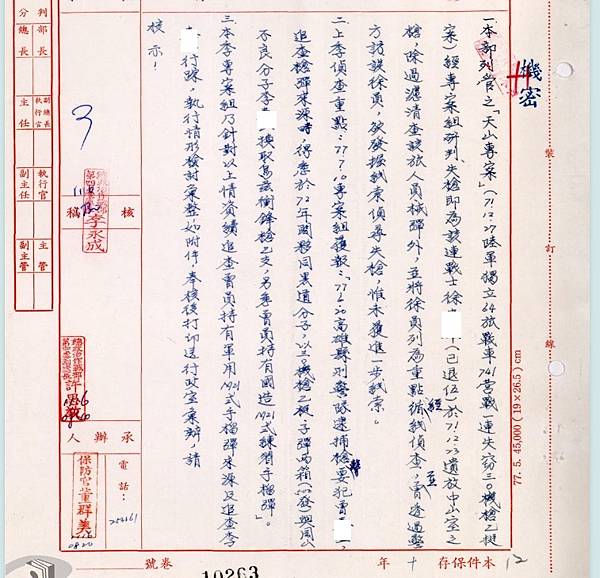 機密
一本部列管之「天山專案」(71.12.27陸軍獨立64旅戰車741營戰一連失竊三〇機槍乙挺
案)經專案組研判、失槍即為該連戰士徐 (已退伍)於71.12.23遺放中山室之
槍,除過濾清查該旅人員械彈外,並將徐員列為重點經循線偵查,
方該談徐員,欲發掘線索偵尋失槍,惟未獲進一步線索。
二上季偵查重點:77.7.10專案組獲報:77.6.30高雄縣刑警隊逮捕槍擊要犯曹
追查槍彈來源時,得悉於72年間夥同黑道分子,以三〇機槍乙挺子彈兩箱
不良分子李 換取烏茲衝鋒槍乙支,另悉曹員持有國造1921式練習手榴彈」。
三本季專案組乃針對以上情資續追查曹員持有軍用1921式手榴彈來源及追查李
行踪,執行情形檢討案整如附件,奉核後打印送行政室彙辦,請
核示!
分判
部長
總長
副總長
執行官
主任
執行官
副主任
主官
副主管
核
稿
總政治作戰部
李永成
總政治作戰部
許
承辦人
保防官董群美
0820
電話:
252161
裝
訂
線
77. 5. 45,000 (19×26.5) cm
本件保存 十 年
12
卷號
10263